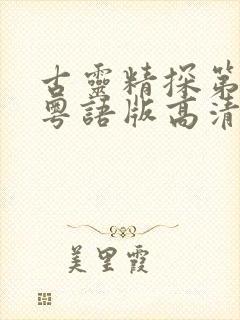 古靈精探第
粵語版高清
美里霞